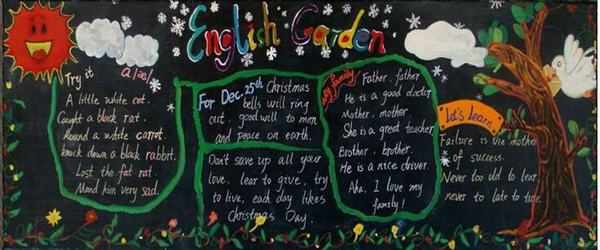 English Garden
Try it
A little white cat.
Caught a black rat.
Around a white carrot.
knock down a black rabbit.
Lost the fat rat.
Mand him very sad.
For Dec. 25th Christmas
bells will ring
out, good will to men
and peace on earth.
Don't save up all your
love, lear to give, try
to live, each day likes
Christmas Day.
My family
Father, father
He is a good doctor
Mother, mother
She is a great teacher
Brother, brother.
He is a nice driver.
Aha, I love my
family!
let's learn
Failure is the mother
of success.
Never too old to lear
never to late to